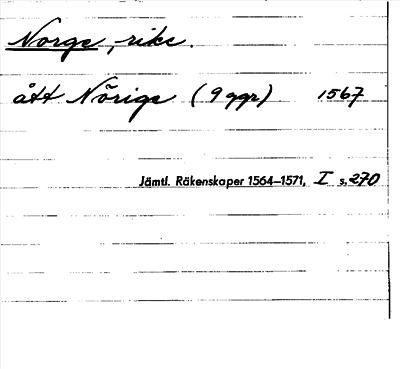 Norge, rike.
ått Nõrige (9 ggr) 1567
Jämtl. Räkenskaper 1564–1571, I s. 270